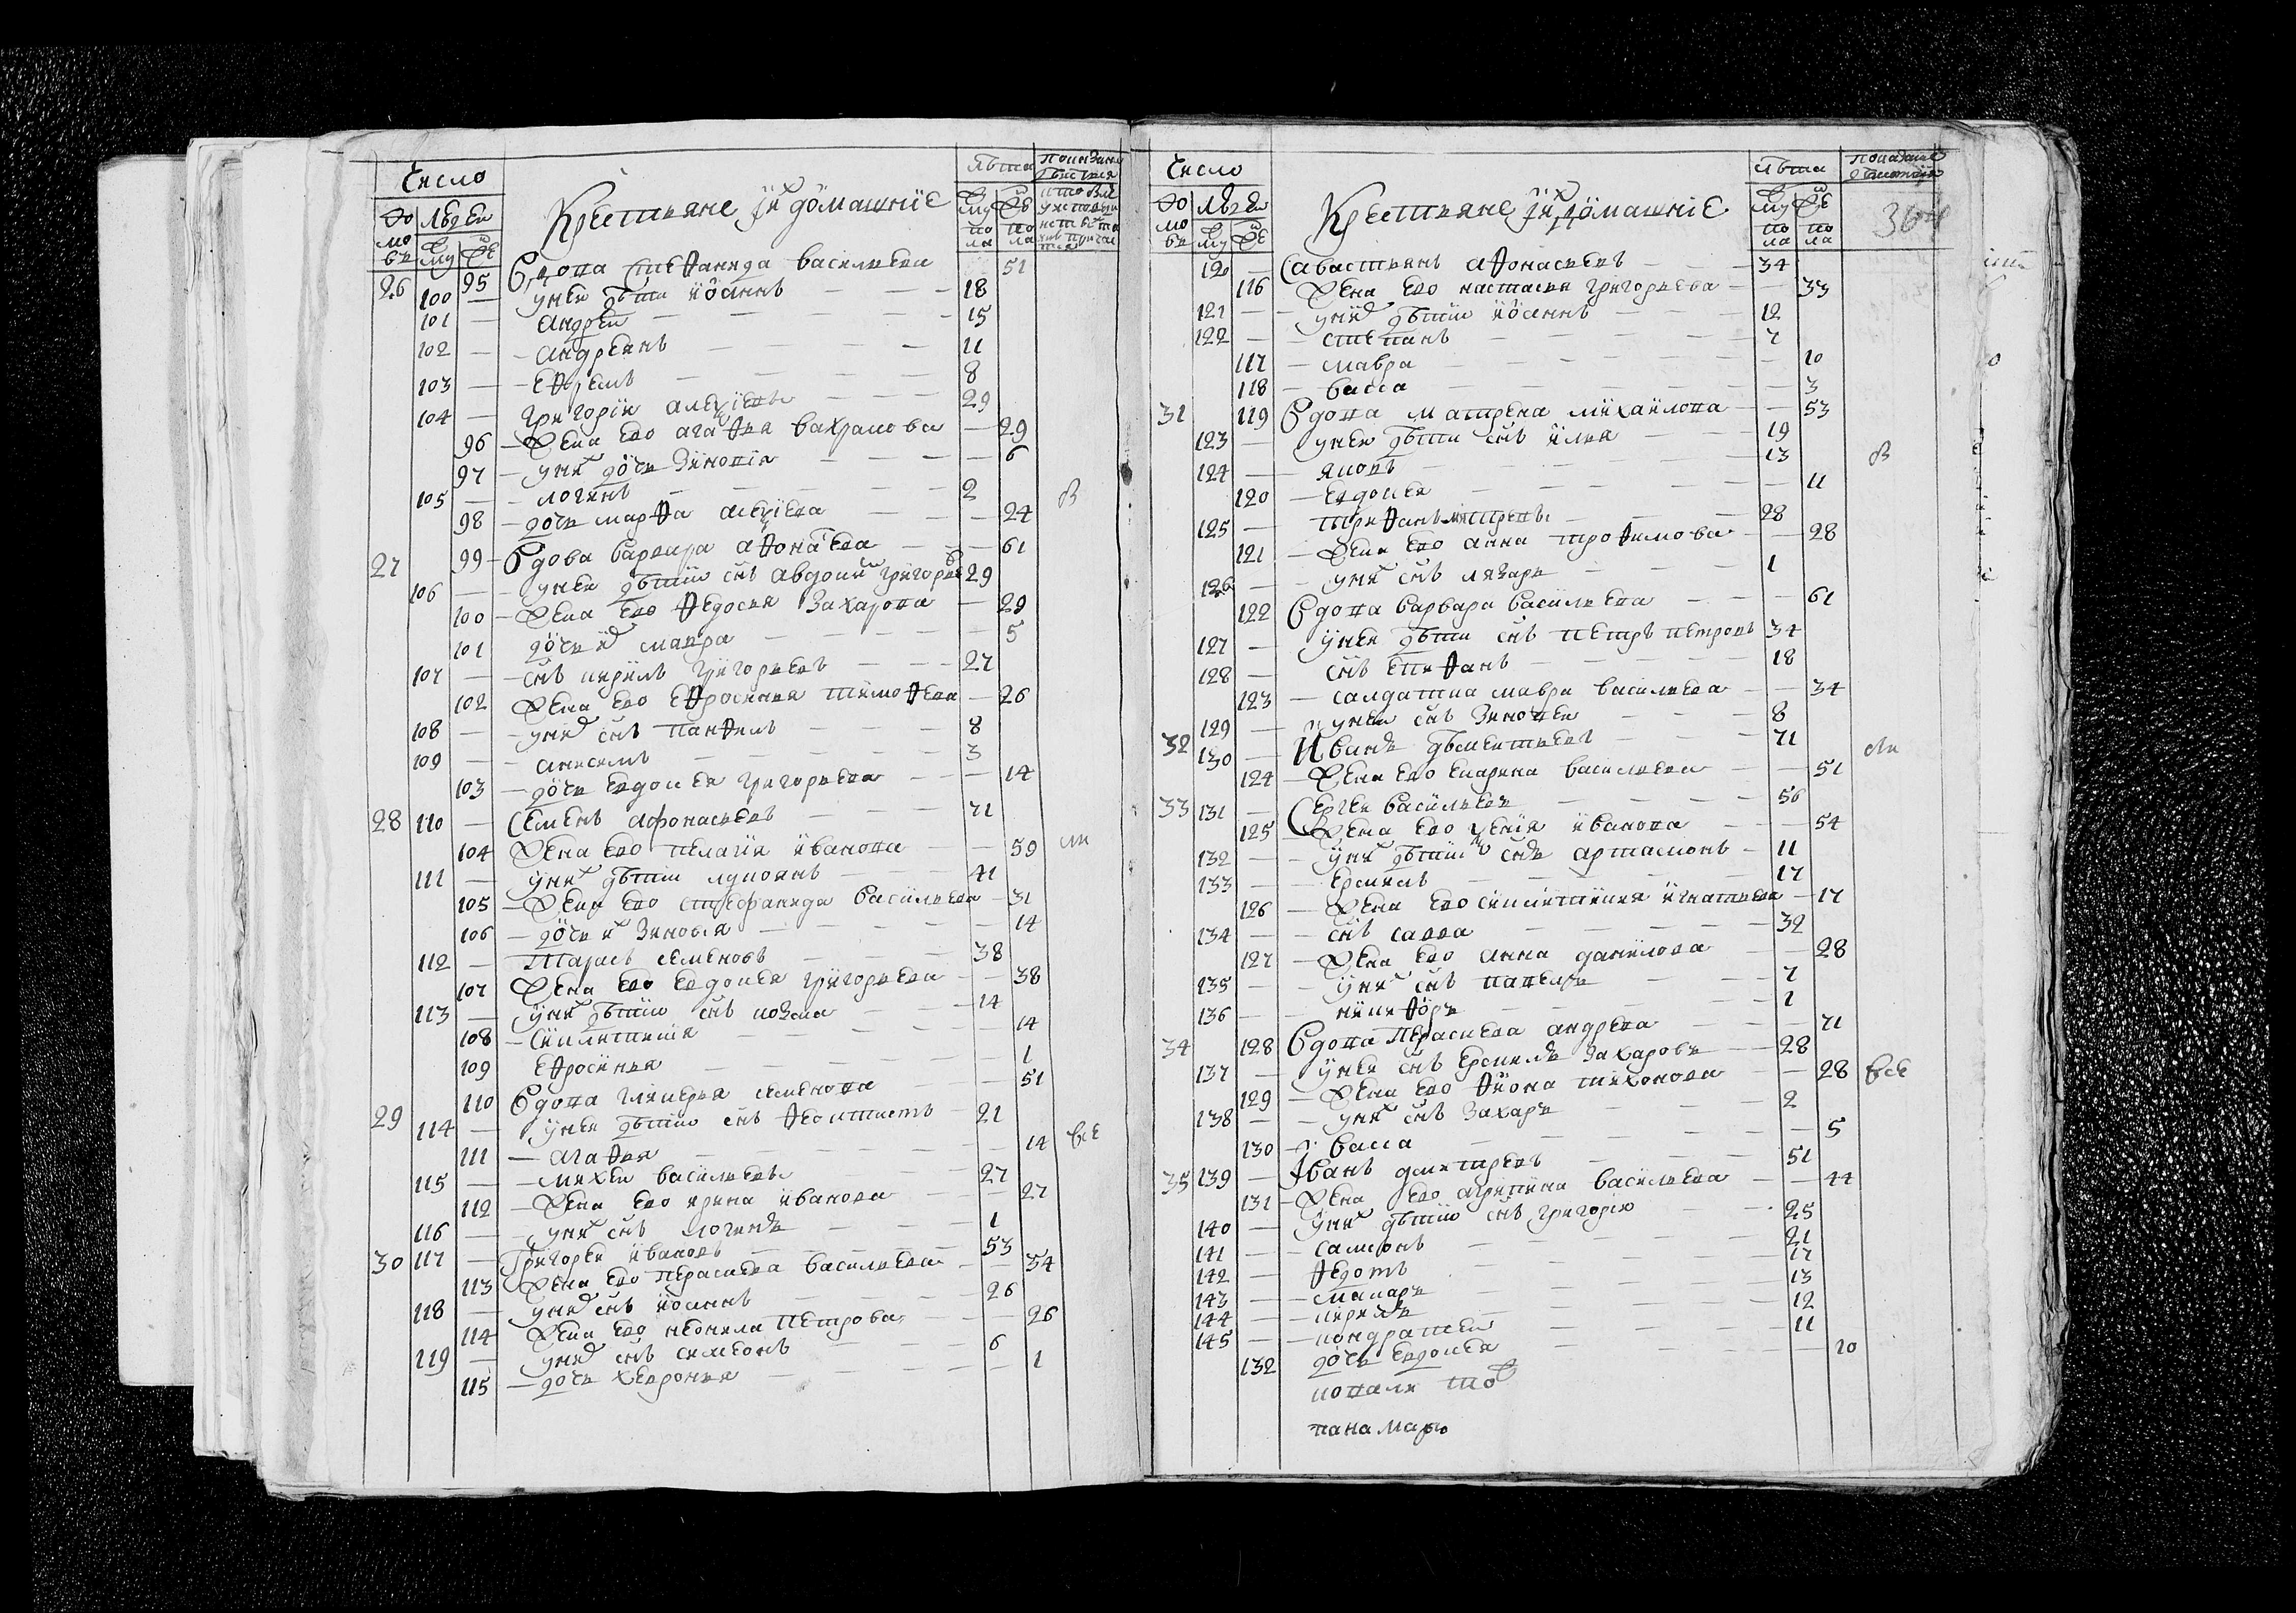 Число
Домовъ Людеи
Му Же
Крестьяне их домашніе
Лѣта
Му пола Же пола
26 95 Вдова Стефанида васильева 51
100 — унеи дѣти иоаннъ 18
101 — андреи 15
102 — андреянъ 11
103 — ефремъ 8
104 — григории алеѯіевъ 29
96 — жена ево агафия вахрамова 29
97 — уних дочь зиновіа 6
105 — логинъ 2
98 — дочь марфа алеѯіева 24
27 99 — Вдова варвара афонасева 61
106 — унеи дѣти снъ авдоким григорьев 29
100 — жена ево федосия захарова 29
101 дочь их мавра 5
107 — снъ кирилъ григорьевъ 27
102 жена ево ефросиния тимофеева 26
108 — уних снъ панфилъ 8
109 — анисимъ 3
103 — дочь евдокея григорьева 14
28 110 — Семенъ афонасьевъ 71
104 жена ево пелагия иванова 59
111 — уних дѣти лукоянъ 41
105 — жена ево стефанида васильева 31
106 — дочь их зиновья 14
112 — Тарасъ семеновъ 38
107 жена ево евдокея григорьева 38
113 — уних дѣти снъ козма 14
108 — Сиклитикия 14
109 ефросиния 1
110 Вдова гликерия семенова 51
29 114 — унеи дѣти снъ феоктистъ 21
111 — агафия 14 все
115 — михеи васильевъ 27
112 — жена ево ирина иванова 27
116 — уних снъ логинъ 1
30 117 — Григореи ивановъ 53
113 жена ево перасковья васильева 54
118 — уних снъ иоаннъ 26
114 жена ево неонила петрова 26
119 — уних снъ симеонъ 6
115 — дочь хеврония 1
Число
Домовъ Людеи
Му Же
Крестьяне их домашніе
Лѣта
Му пола Же пола
120 — Савастьянъ афонасьевъ 34
116 жена ево настасия григорьева 33
121 — уних дѣти иоаннъ 12
122 — степанъ 7
117 — мавра 10
118 — васса 3
31 119 Вдова матрена михаилова 53
123 — унеи дѣти снъ илия 19
124 — яковъ 13
120 — евдокея 11
125 — трифанъ 28
121 — жена ево анна трофимова 28
126 — уних снъ лазарь 1
122 Вдова варвара васильева 61
127 — унеи дѣти снъ петръ петровъ 34
128 — снъ епифанъ 18
123 — салдатка мавра васильева 34
129 — унеи снъ зиновеи 8
32 130 — Иванъ дѣментьевъ 71
124 — жена ево екарина васильева 51
33 131 — Сергеи васильевъ 56
125 — жена ево ѯения иванова 54
132 — уних дѣти снъ артамонъ 11
133 — ермилъ 17
126 — жена ево сиклитикия игнатьева 17
134 — снъ савва 32
127 — жена ево анна данилова 28
135 — уних снъ павелъ 7
136 — никифоръ 1
34 128 Вдова Перасковья андреева 71
137 — унеи снъ ермилъ захаровъ 28
129 — жена ево фиона тихонова 28 все
138 — уних снъ захаръ 2
130 — васса 5
35 139 — Иванъ дмитревъ 51
131 — жена ево агрипина васильева 44
140 — уних дѣти снъ григорію 25
141 — самсонъ 21
142 — федотъ 17
143 — макаръ 13
144 — кирилъ 12
145 — кондратеи 11
132 дочь евдокея 20
панамарю